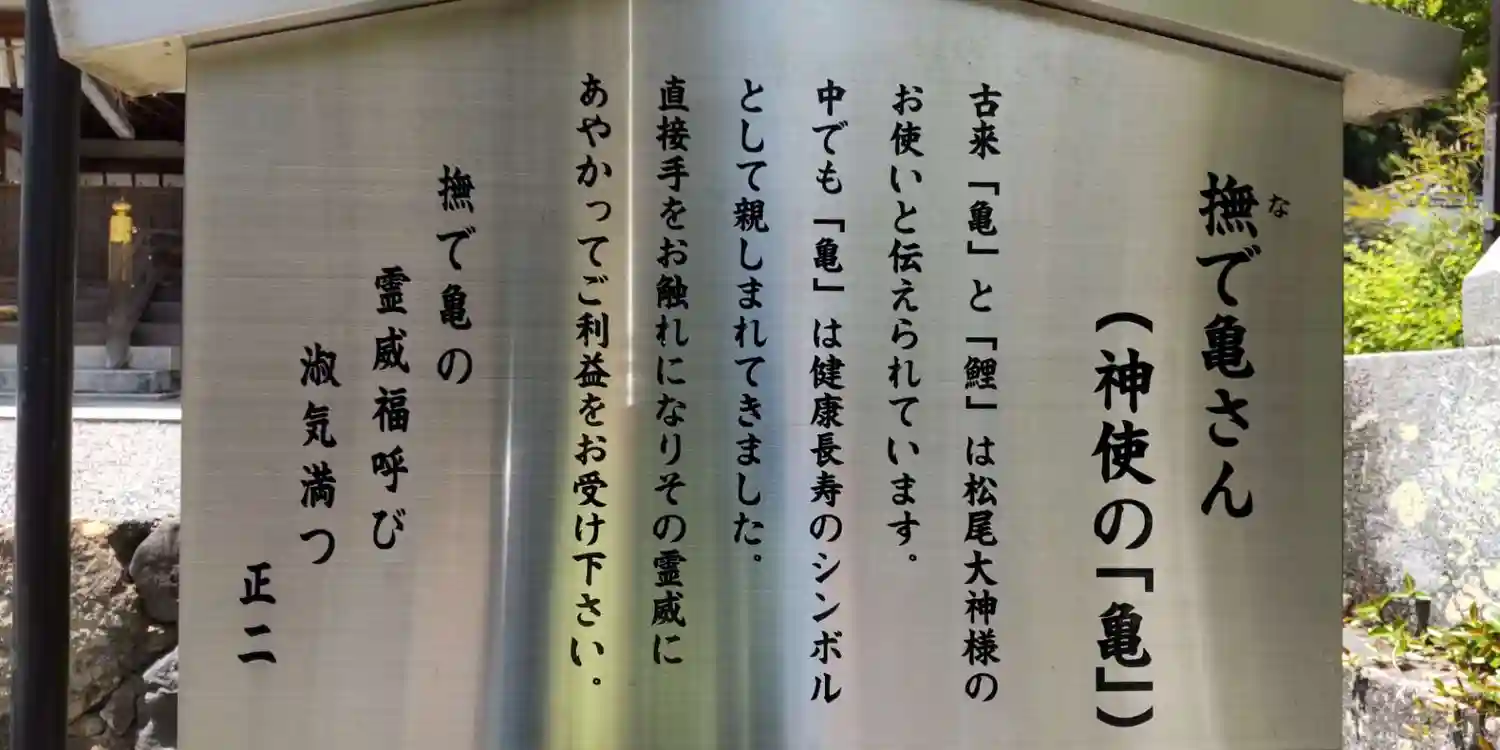 撫で亀さん
な
(神使の「亀」)
古来「亀」と「鯉」は松尾大神様の
お使いと伝えられています。
中でも「亀」は健康長寿のシンボル
として親しまれてきました。
直接手をお触れになりその霊威に
あやかってご利益をお受け下さい。
撫で亀の
霊威福呼び
淑気満つ
正二